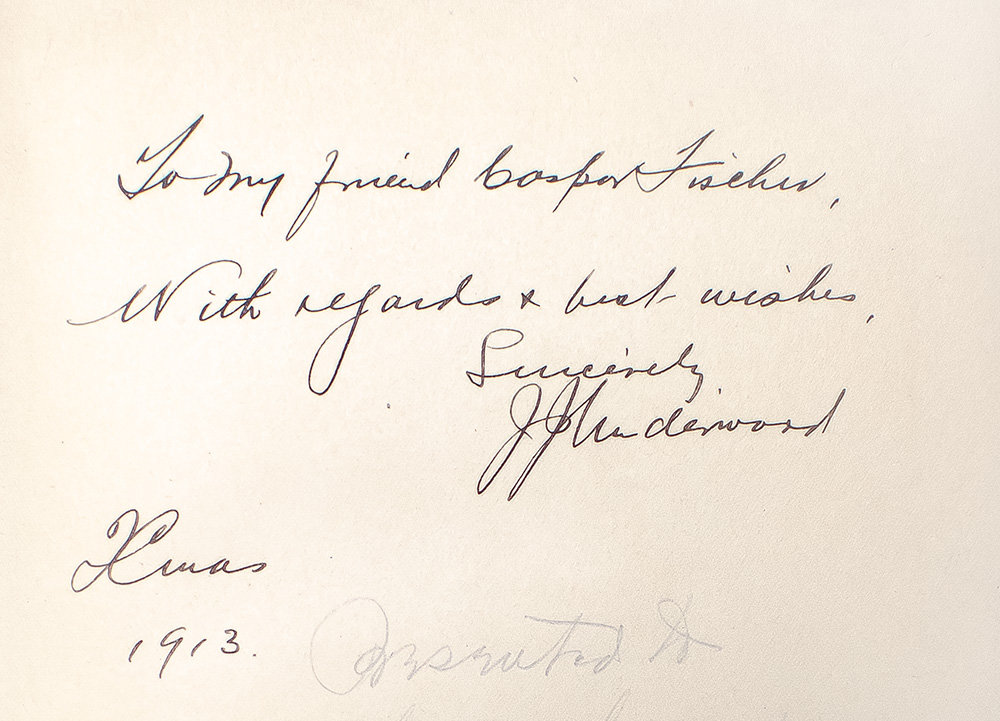 To my friend Casper Fischer,
With regards & best wishes,
Sincerely
JJ Underwood
Xmas
1913.
Presented to